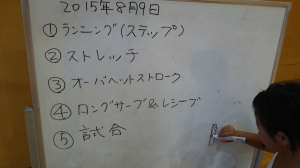 2015年8月9日
①ランニング(ステップ)
②ストレッチ
③オーバヘットストローク
④ロングサーブ&レシーブ
⑤試合